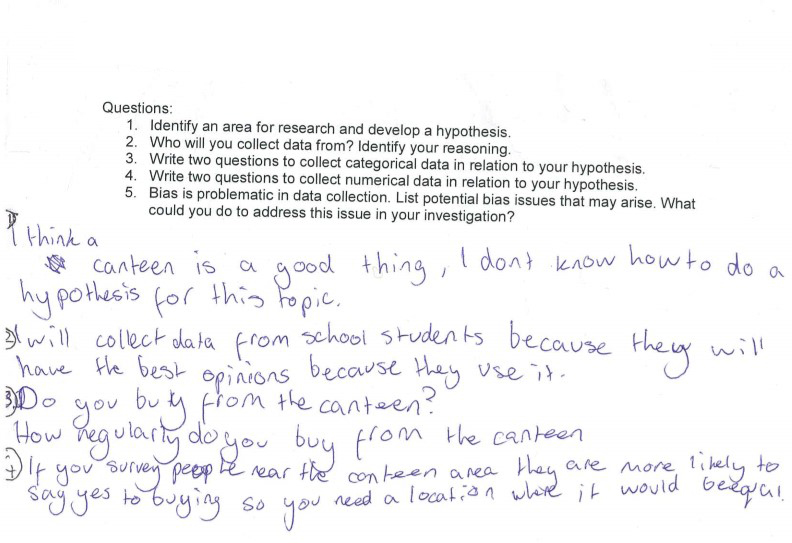 Questions:
1. Identify an area for research and develop a hypothesis.
2. Who will you collect data from? Identify your reasoning.
3. Write two questions to collect categorical data in relation to your hypothesis.
4. Write two questions to collect numerical data in relation to your hypothesis.
5. Bias is problematic in data collection. List potential bias issues that may arise. What
could you do to address this issue in your investigation?
1) I think a
canteen is a good thing, I dont know how to do a
hypothesis for this topic.
2) I will collect data from school students because they will
have the best opinions because they use it.
3) Do you buy from the canteen?
How regularly do you buy from the canteen
If you survey people near the canteen area they are more likely to
say yes to buying so you need a location where it would be equal.